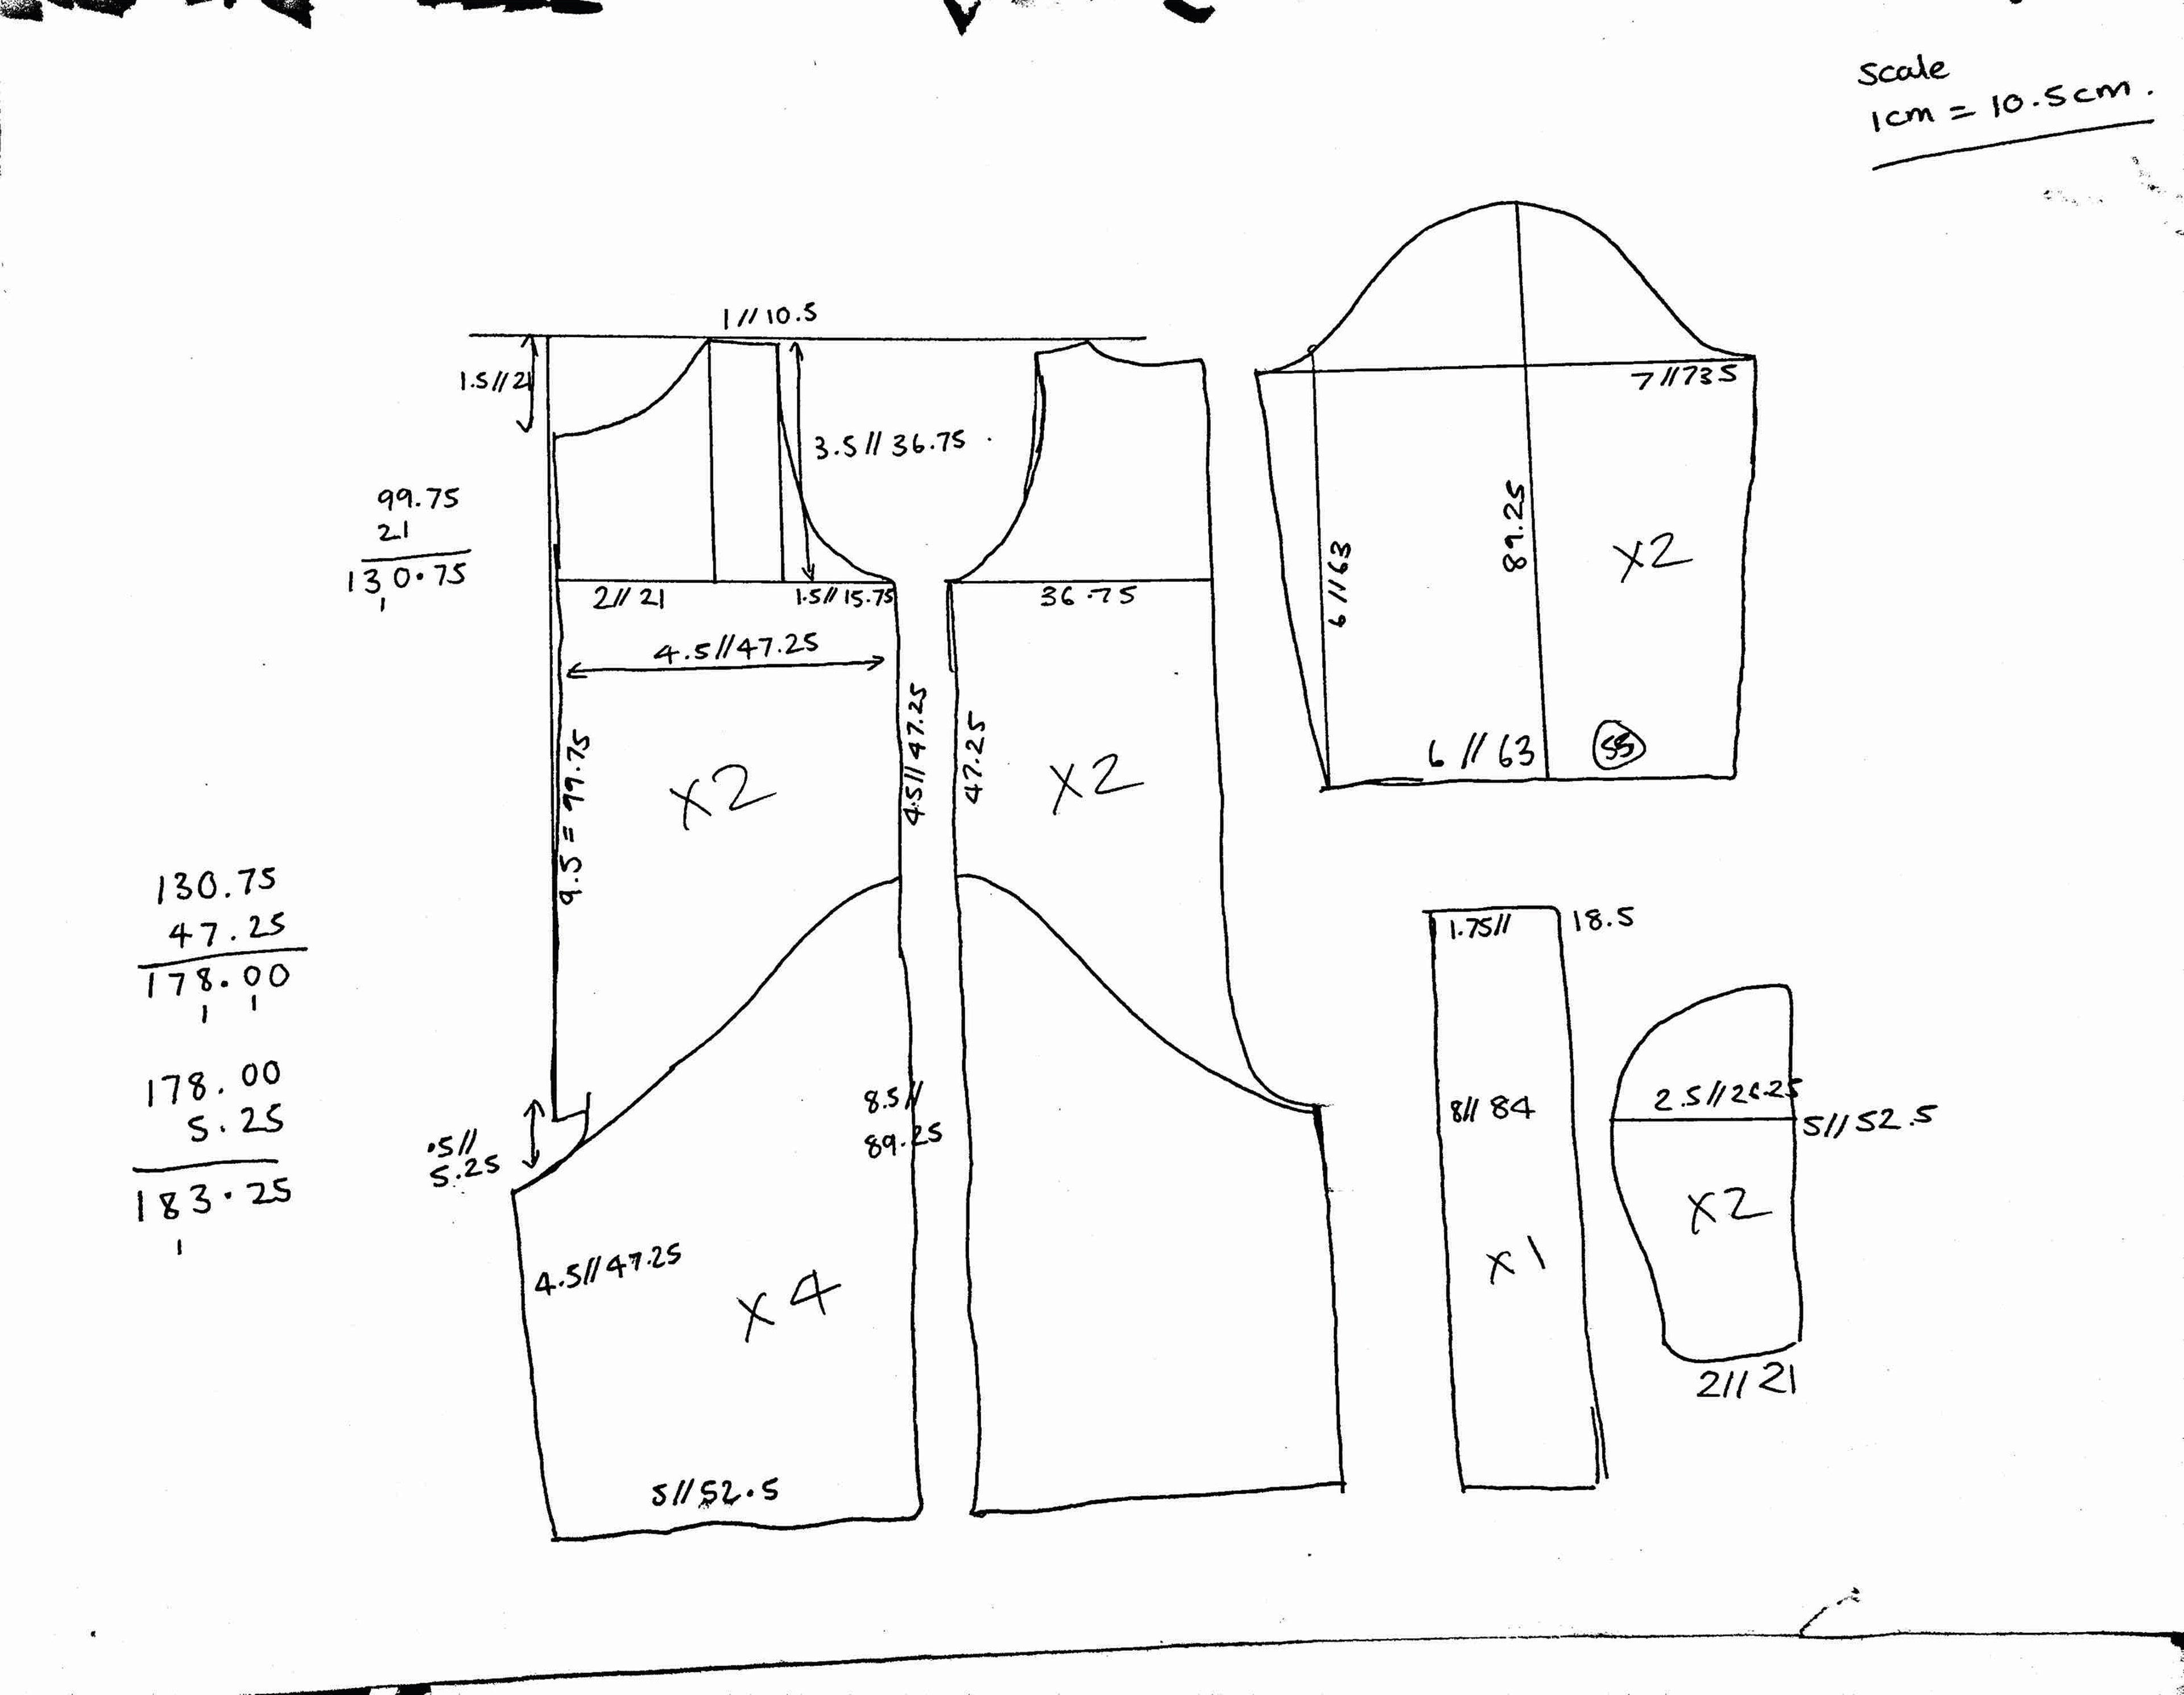 scale
1cm = 10.5cm.
1//10.5
1.5//21
3.5//36.75
7//735
99.75
21
130.75
1
2//21
1.5//15.75
36.75
4.5//47.25
6//63
89.25
x2
9.5 = 99.75
x2
4.5//47.25
47.25
x2
6//63
55
130.75
47.25
178.00
1 1
1.75//
18.5
178.00
5.25
183.25
1
.5//
5.25
8.5//
89.25
8//84
2.5//26.25
5//52.5
x2
4.5//47.25
x4
x1
2//21
5//52.5